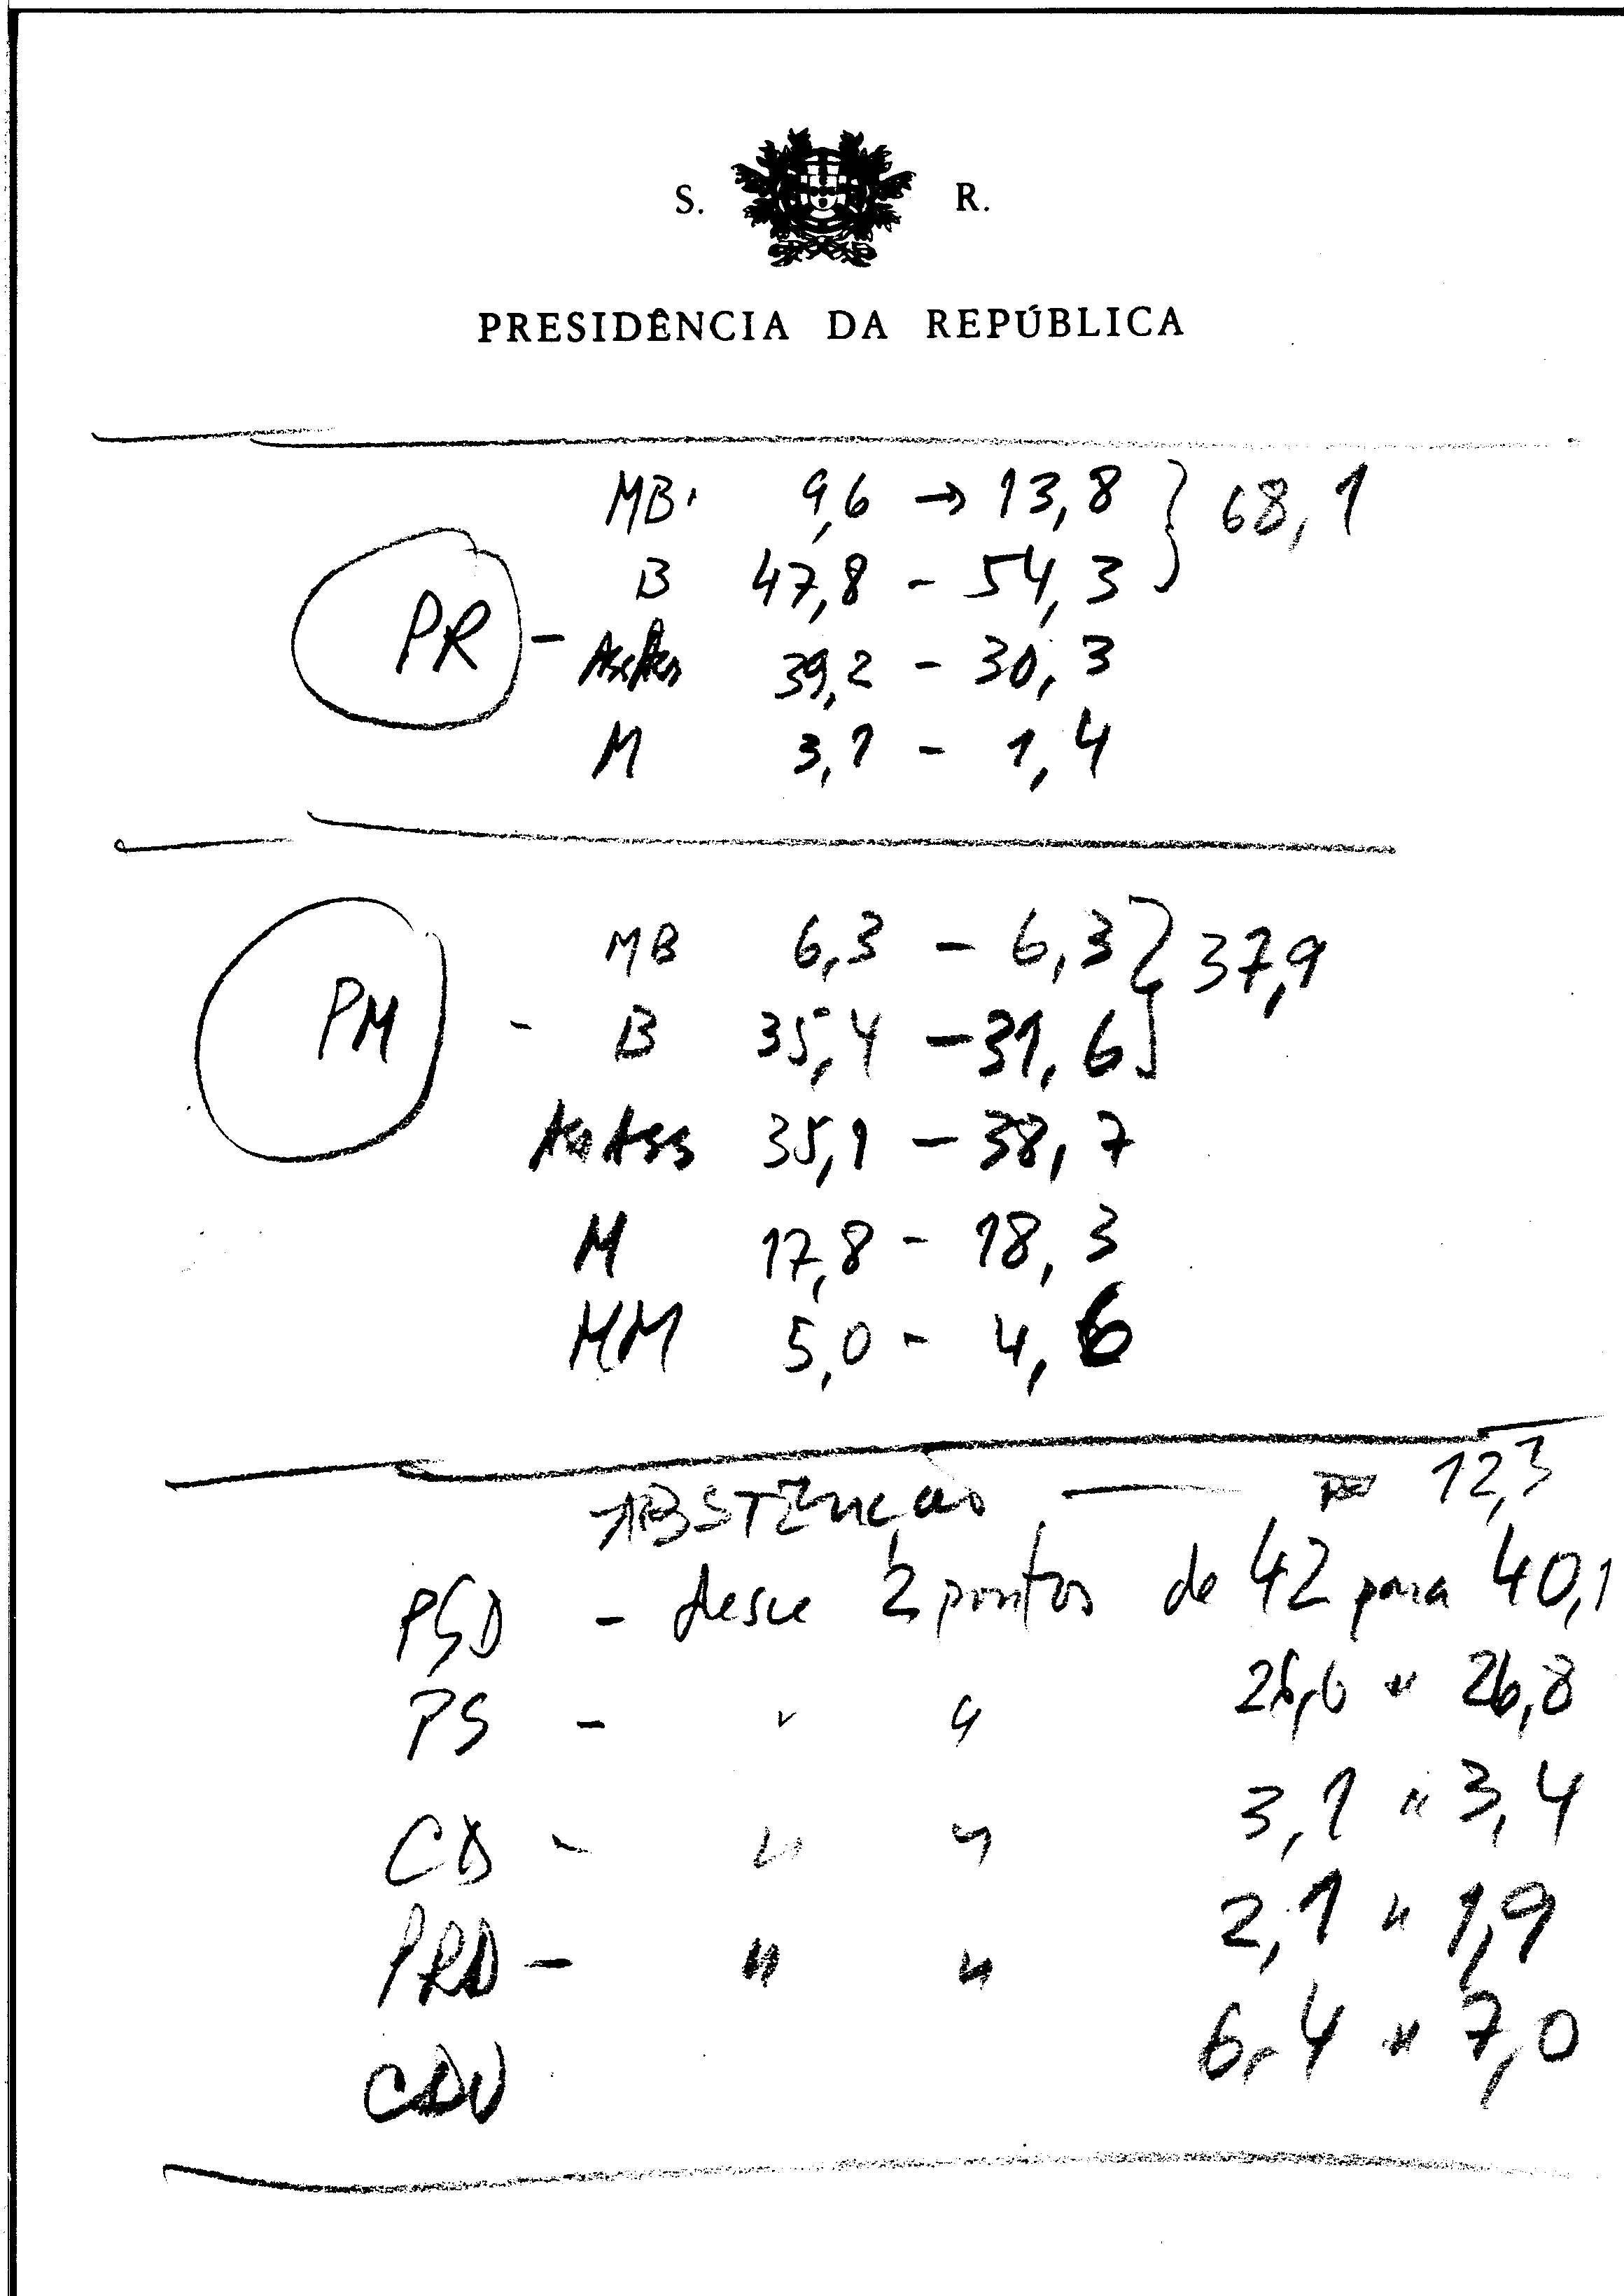 S. R.
PRESIDÊNCIA DA REPÚBLICA
MB. 9,6 → 13,8 } 68,1
B 47,8 - 54,3
PR - 39,2 - 30,3
M 3,1 - 1,4
MB 6,3 - 6,3 } 37,9
PM - B 35,4 - 31,6
35,1 - 38,7
M 17,8 - 18,3
MM 5,0 - 4,6
ABSTENÇÃO — 12,3
PSD - desce 2 pontos de 42 para 40,1
PS - " " " 26,8
CDS - " " 3,1 " 3,4
PRD - " " 2,1 " 1,9
CDU 6,4 " 7,0